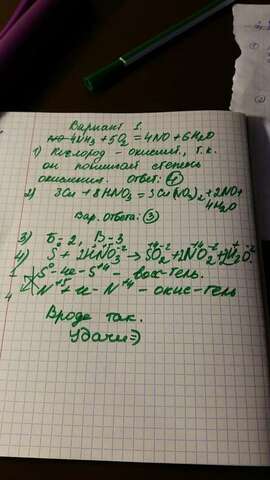 Вариант 1.
4NH₃ + 5O₂ = 4NO + 6H₂O
1) Кислород - окислит., т.к.
он понижал степень
окисления. Ответ: ④
2) 3Cu + 8HNO₃ = 3Cu(NO₃)₂ + 2NO +
4H₂O
Вар. ответа: ③
3) Б-2, В-3
4) S + HNO₃ → SO₂ + NO₂ + H₂O
1 S⁰ - 4e - S⁺⁴ - восс-тель.
4 N⁺⁵ + e - N⁺⁴ - окис-тель
Вроде так.
Удачи =)